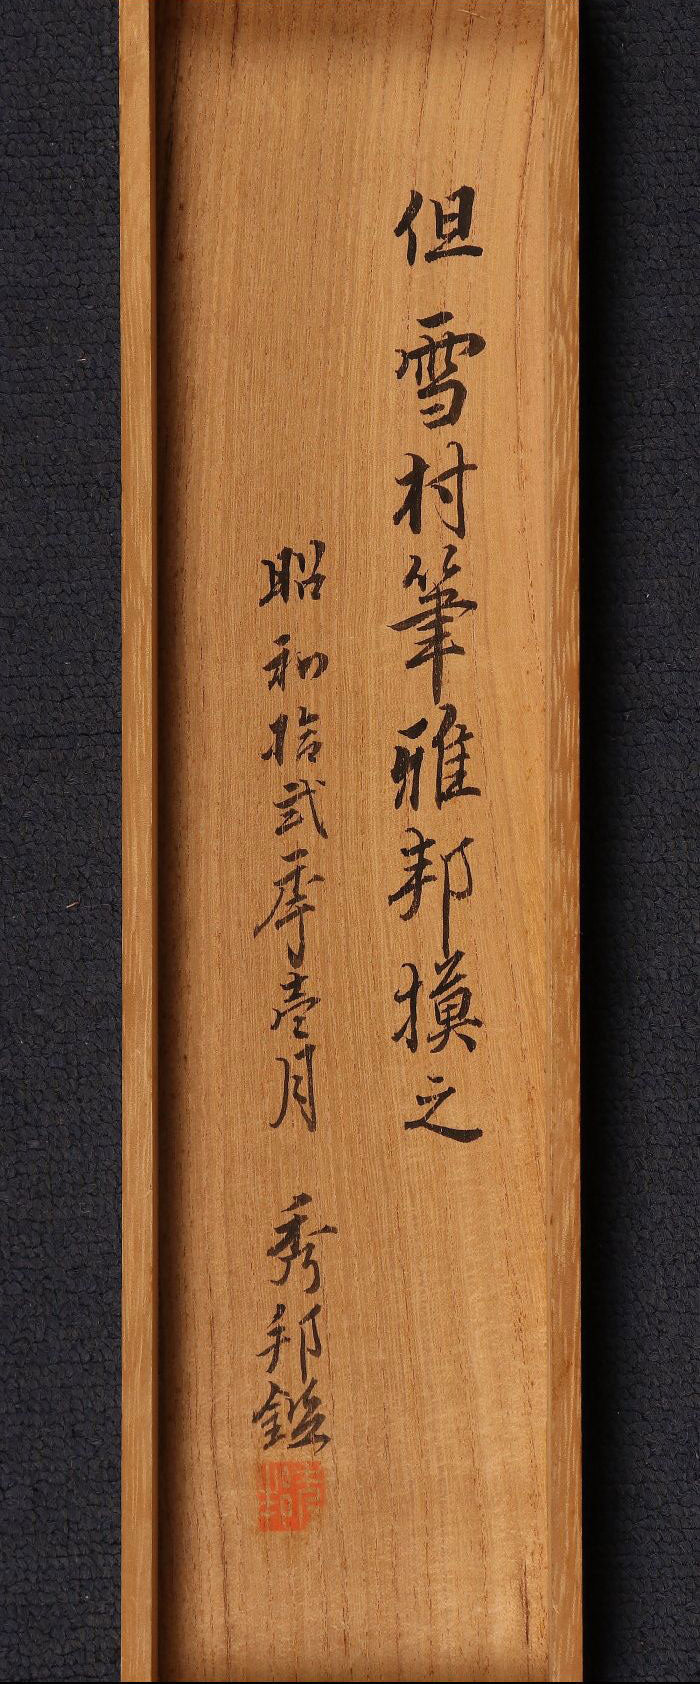 但雪村筆雅邦摸之
昭和拾弐季壱月 秀邦鑑